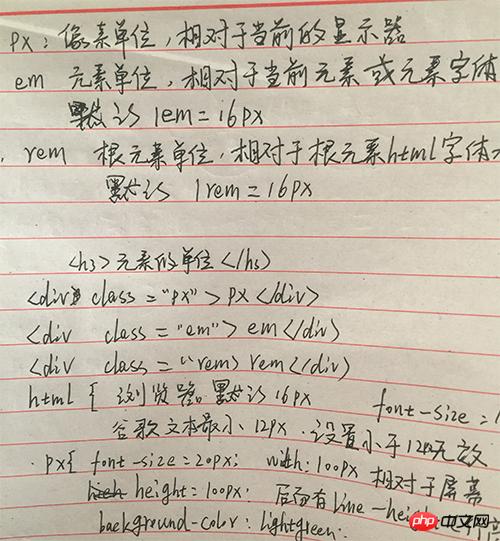 px：像素单位，相对于当前的显示器
em 元素单位，相对于当前元素或元素字体
默认 1em=16px
rem 根元素单位，相对于根元素html字体
默认 1rem=16px
<h3>元素的单位</h3>
<div class="px">px</div>
<div class="em">em</div>
<div class="rem>rem</div>
html { 浏览器默认16px
font-size=
谷歌文本最小12px．设置小于12px无效
.px{ font-size=20px; with：100px 相对于屏幕
height=100px; 后面有line-height
background-color：lightgreen;
php 中文网